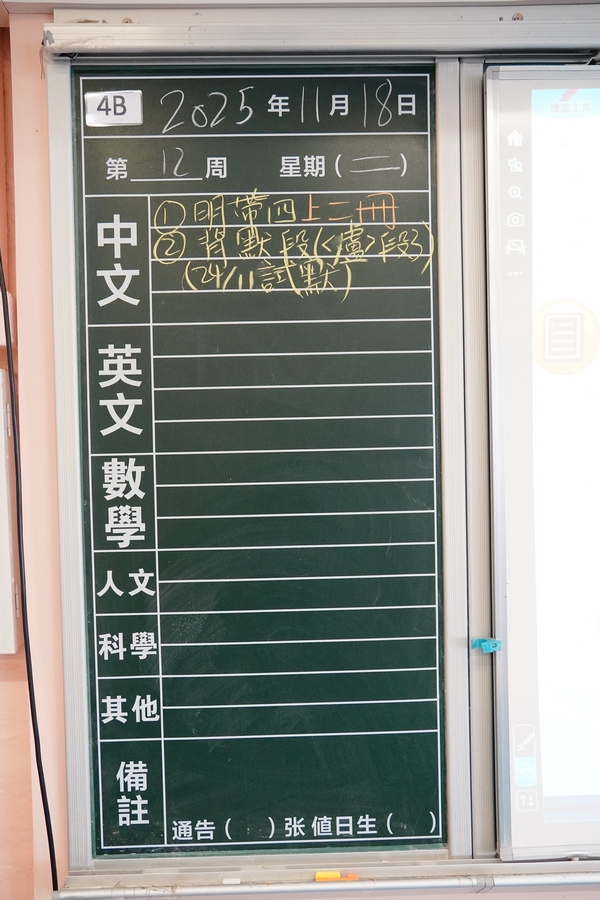 4B 2025 年 11 月 18 日
第 12 周 星期 ( 二 )
中文
① 明帶四上二冊
② 背默段(<盧>段3)
(24/11試默)
英文
數學
人文
科學
其他
備註
通告 ( ) 张 值日生 ( )